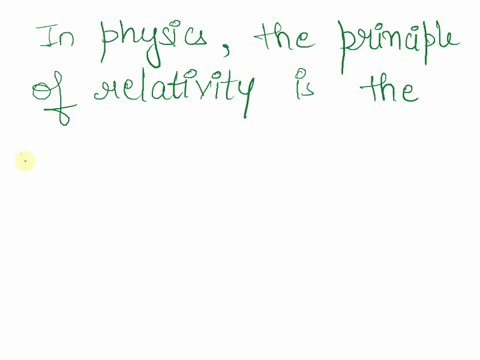 In physics, the principle
of relativity is the